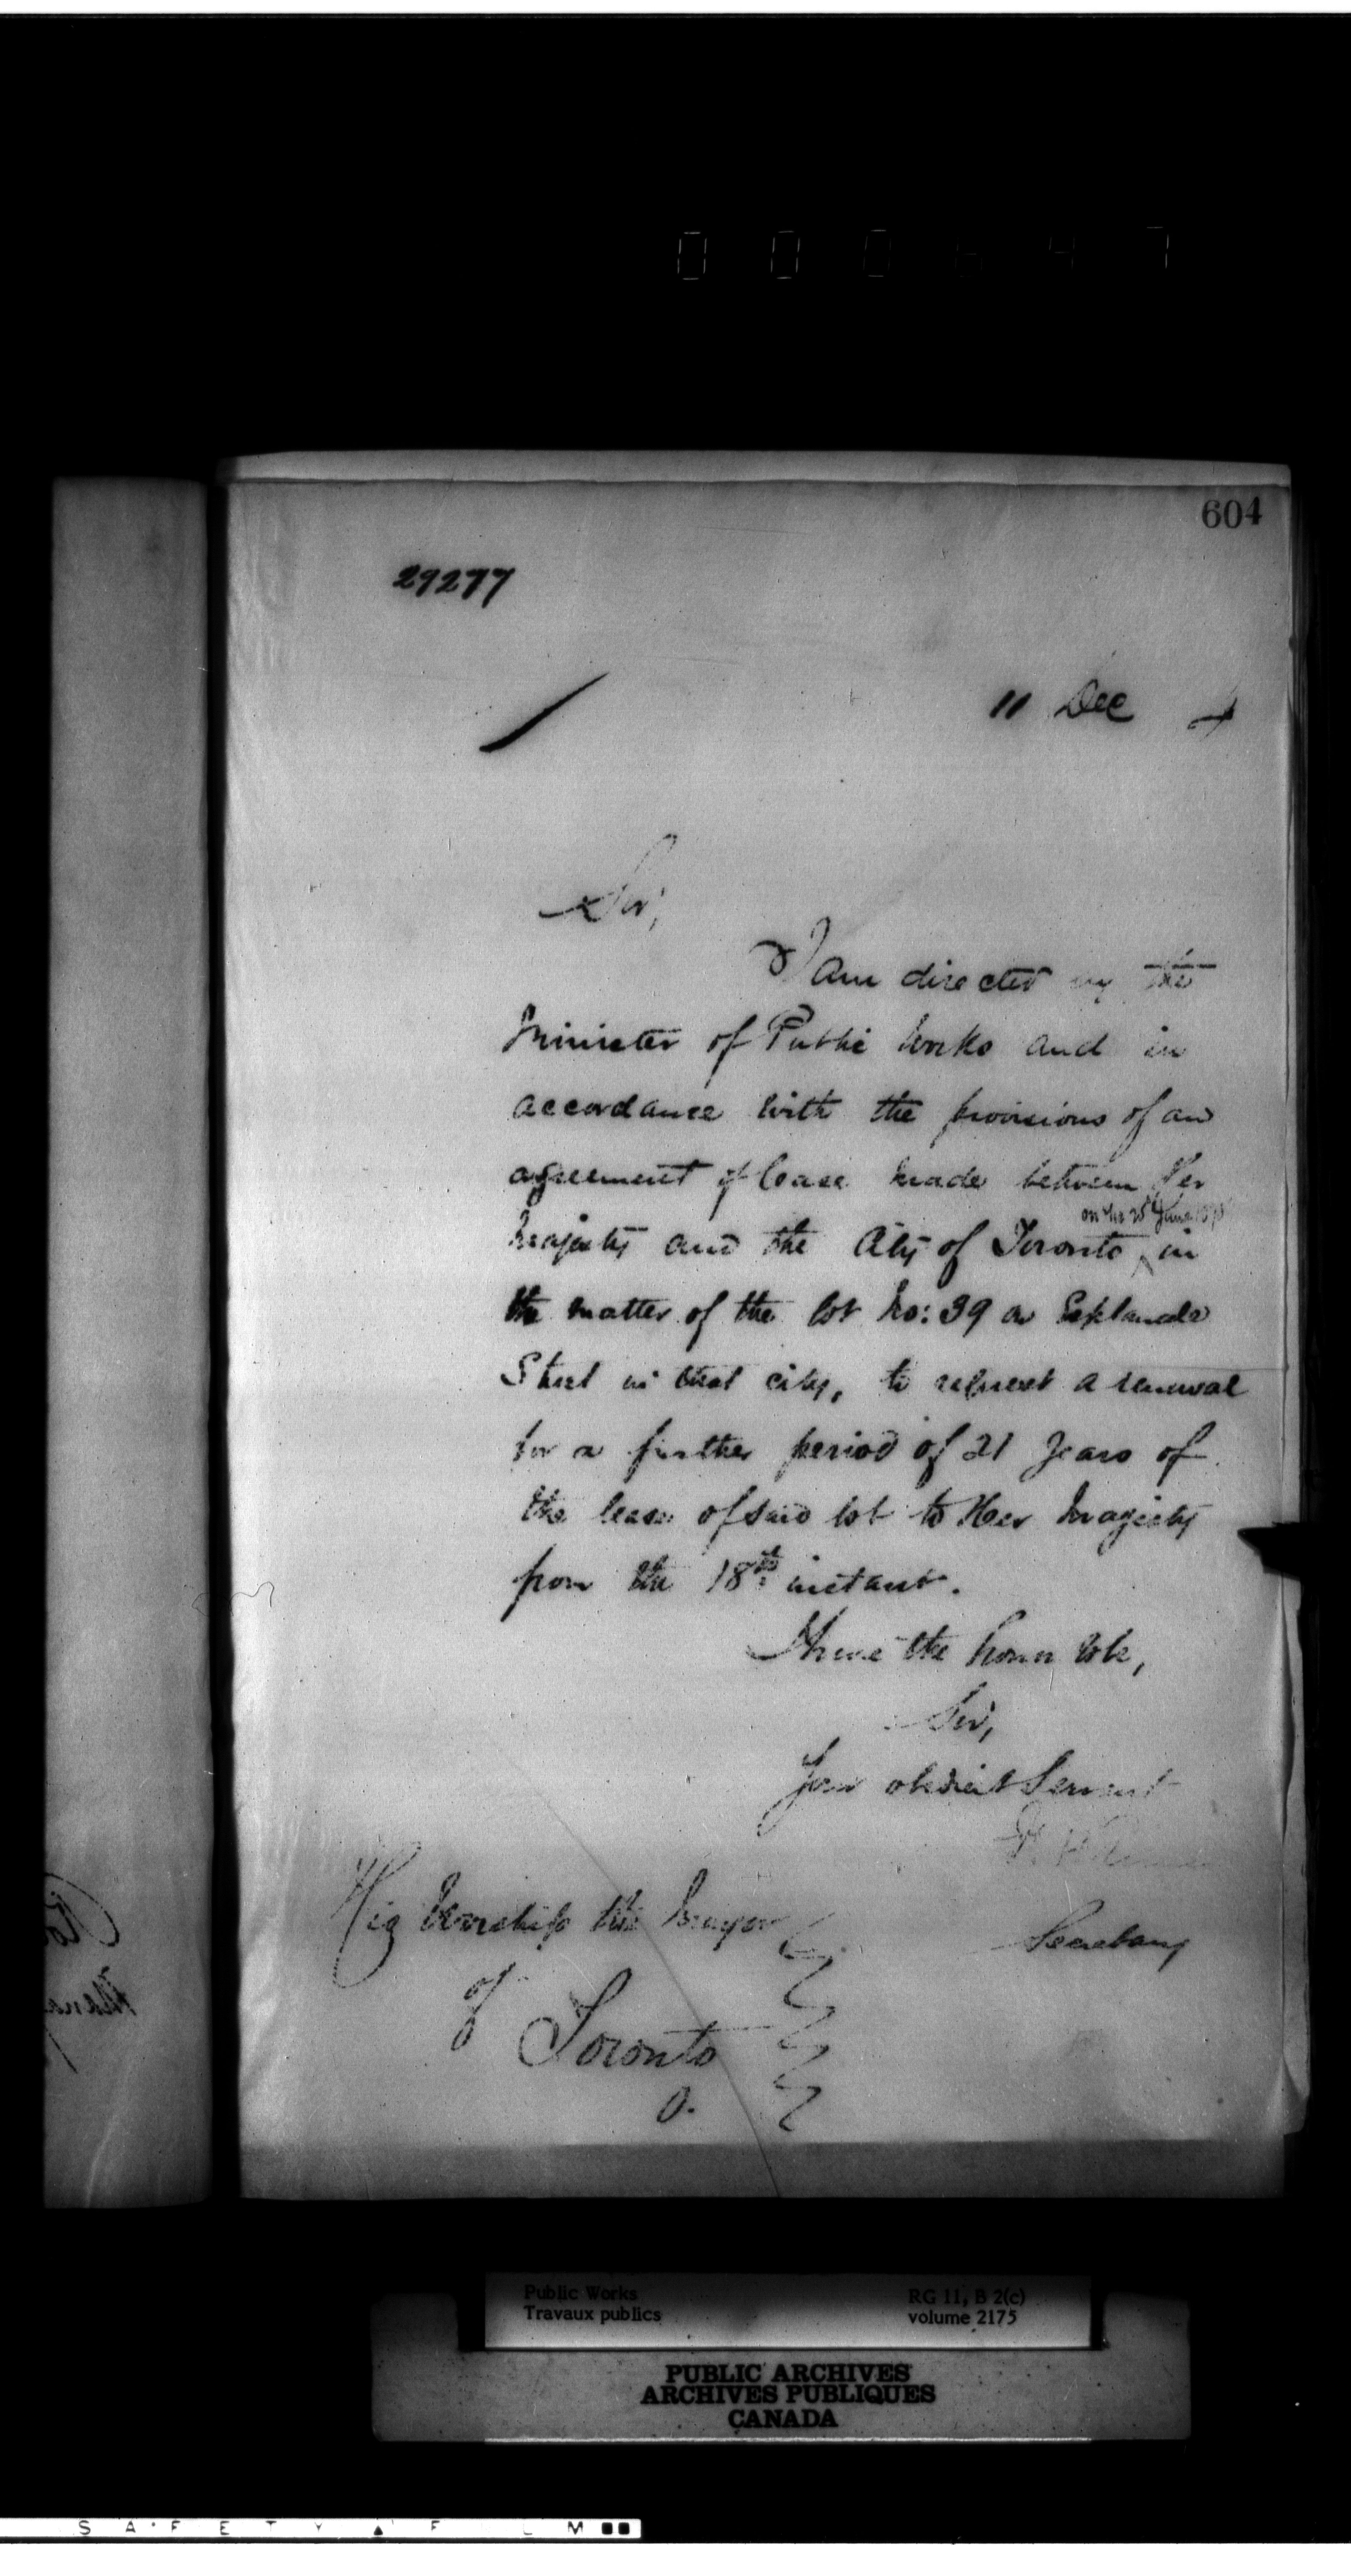 000647
604
29277
11 Dec 4
Sir,
I am directed by the
Minister of Public Works and in
accordance with the provisions of an
agreement of lease made between Her
on the 25th June
Majesty and the City of Toronto in
the matter of the lot No: 39 on Esplanade
Street in that city, to request a renewal
for a further period of 21 years of
the lease of said lot to Her Majesty
from the 18th instant.
I have the honor to be,
Sir,
Your obedient Servant
Secretary
His Worship the Mayor
of Toronto
O.
Public Works
Travaux publics
RG 11, B 2(c)
volume 2175
PUBLIC ARCHIVES
ARCHIVES PUBLIQUES
CANADA
SAFETY FILM